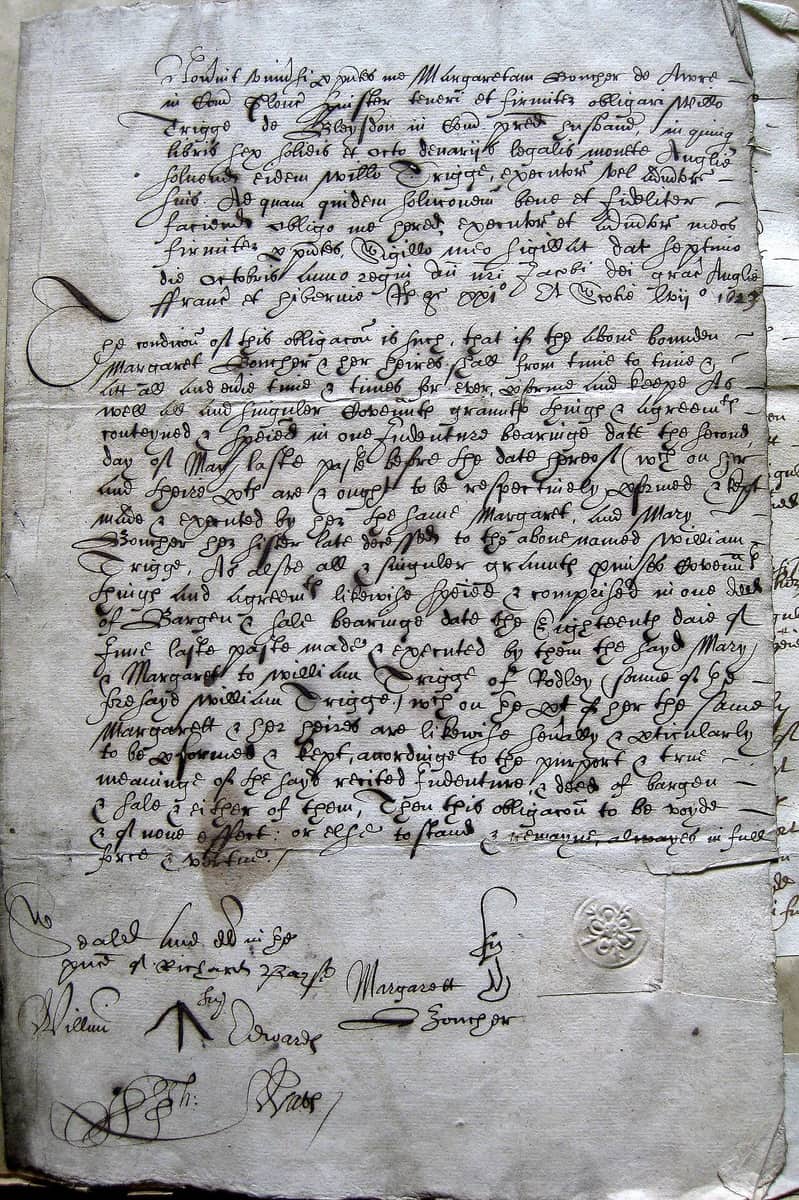 Noverint univsi p pntes me Margaretam Boucher de Awre
in Com Glouc spinster teneri et firmiter obligari Willo
Trigge de Bleysdon in Com pred husband, in quinq
libris sex solidis et octo denariis legalis monete Anglie
solvend eidem Willo Trigge, executor vel admstr
suis Ad quam quidem soluconem bene et fideliter
faciend obligo me hered, executor et admstr meos
firmiter p pntes, Sigillo meo sigillat dat septimo
die Octobris Anno regni dni nri Jacobi dei grac Anglie
ffranc et Hibernie Rs &c xxi° Et Scotie lvij° 1623
The condicou of this obligacou is such, that if the above bounden
Margaret Boucher & her heires, shall from time to time &
att all and evie time & times for ever, pforme and keepe As
well all and singuler Covenmts graunts things & agreemts
conteyned & specied in one Indenture bearinge date the second
day of May laste paste before the date hereof (wch on her
and theire pts are & ought to be respectively pformed & kept
made & executed by her the same Margaret, and Mary
Boucher her sister late decessed to the above named William
Trigge, As alsoe all & singuler graunts pmises Covenmts
things and Agreemts likewise specied & comprised in one deed
of Bargen & sale bearinge date the Eighteenth daie of
June laste paste made & executed by them the sayd Mary
& Margaret to William Trigge of Rodley sonne of the
foresayd William Trigge, wch on the pt of her the same
Margarett & her heires are likewise sevally & pticularly
to be pformed & kept, accordinge to the purport & true
meaninge of the sayd recited Indenture, & deed of bargen
& sale & either of them, Then this obligacou to be voyde
& of none effect: or else to stand & remayne, alwayes in full
force & vertue.
Sealed and dd in the
psnce of Richard
Margarett
Boucher
Willm Edwards